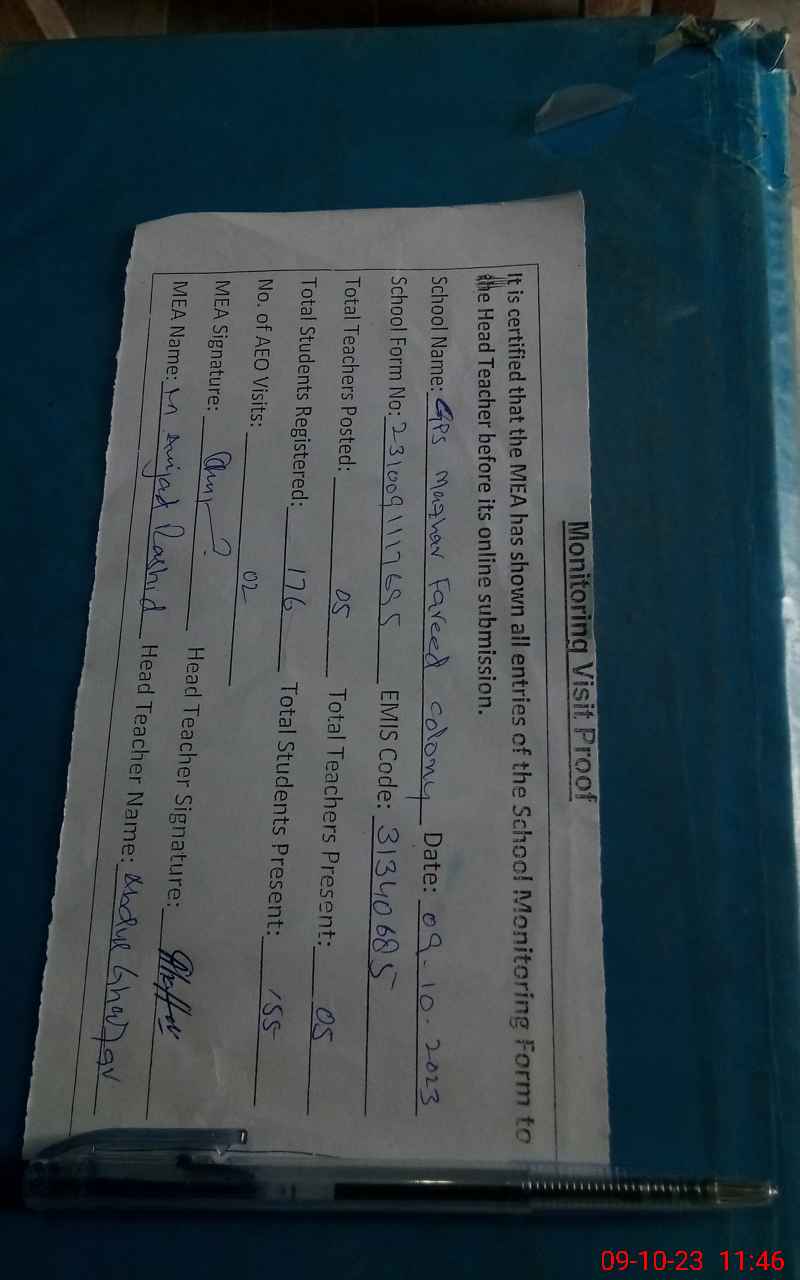 Monitoring Visit Proof
It is certified that the MEA has shown all entries of the School Monitoring Form to
the Head Teacher before its online submission.
School Name: GPS Mazhar Fareed colony Date: 09-10-2023
School Form No: 2310091117695 EMIS Code: 31340685
Total Teachers Posted: 05 Total Teachers Present: 05
Total Students Registered: 176 Total Students Present: 155
No. of AEO Visits: 02
MEA Signature: Head Teacher Signature:
MEA Name: M Amjad Rashid Head Teacher Name: Abdul Ghaffar
09-10-23 11:46